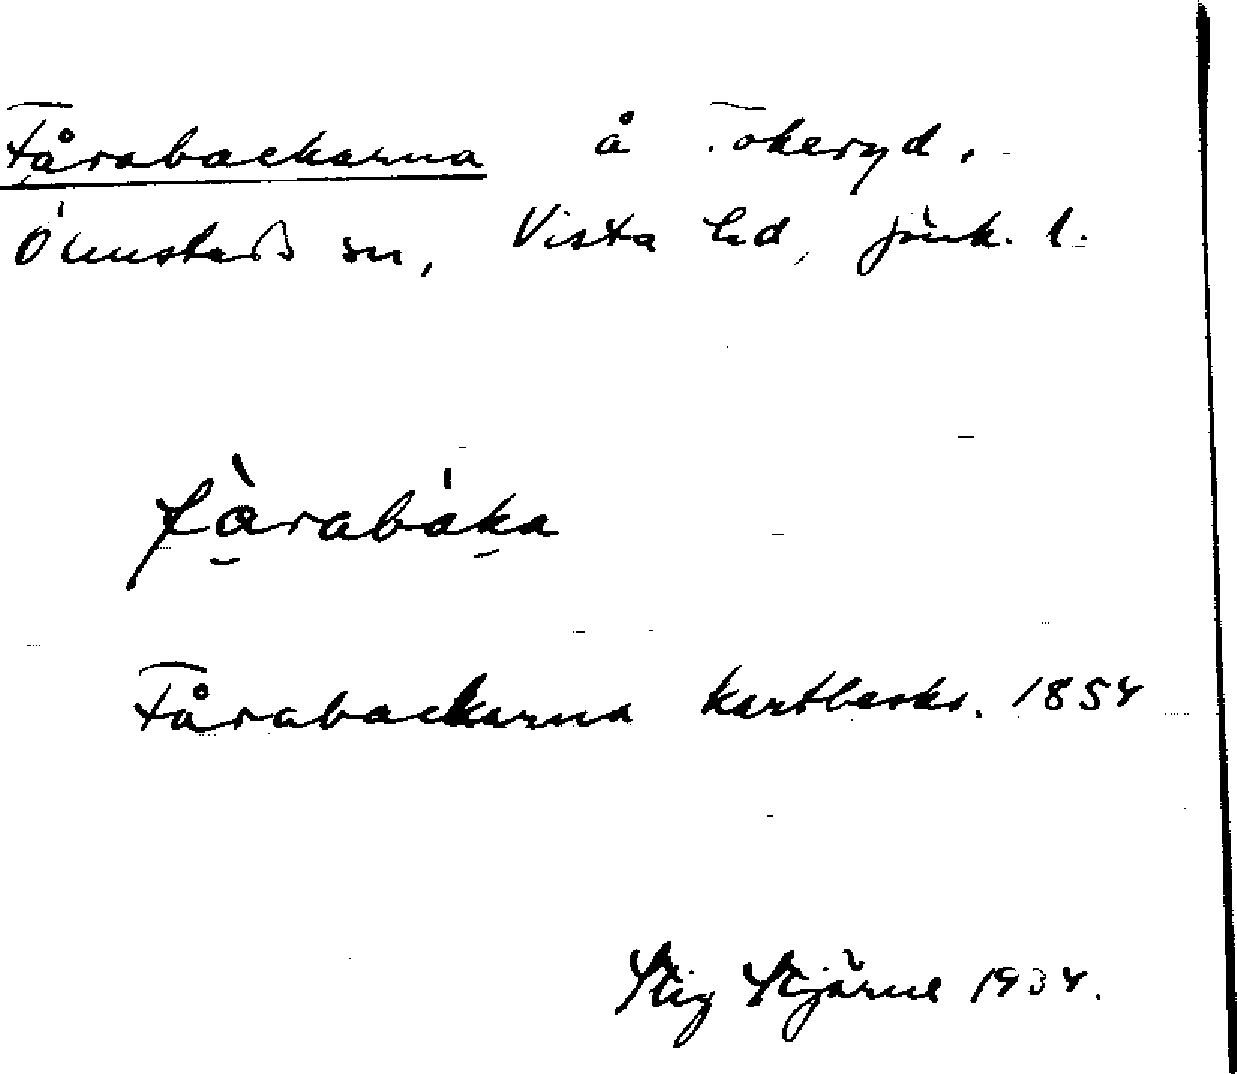 Fårabackarna å Tokeryd,
Ölmstads sn, Vista hd, Jönk. l.
fàrabáka
Fårabackarna kartbeskr. 1854
Stig Stjärne 1934.